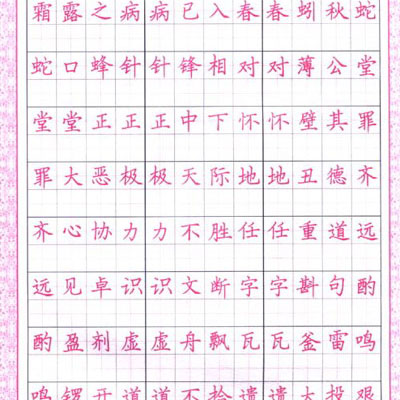 霜露之病病已入春春蚓秋蛇
蛇口蜂针针锋相对对薄公堂
堂堂正正正中下怀怀壁其罪
罪大恶极极天际地地丑德齐
齐心协力力不胜任任重道远
远见卓识识文断字字斟句酌
酌盈剂虚虚舟飘瓦瓦釜雷鸣
鸣锣开道道不拾遗遗大投艰